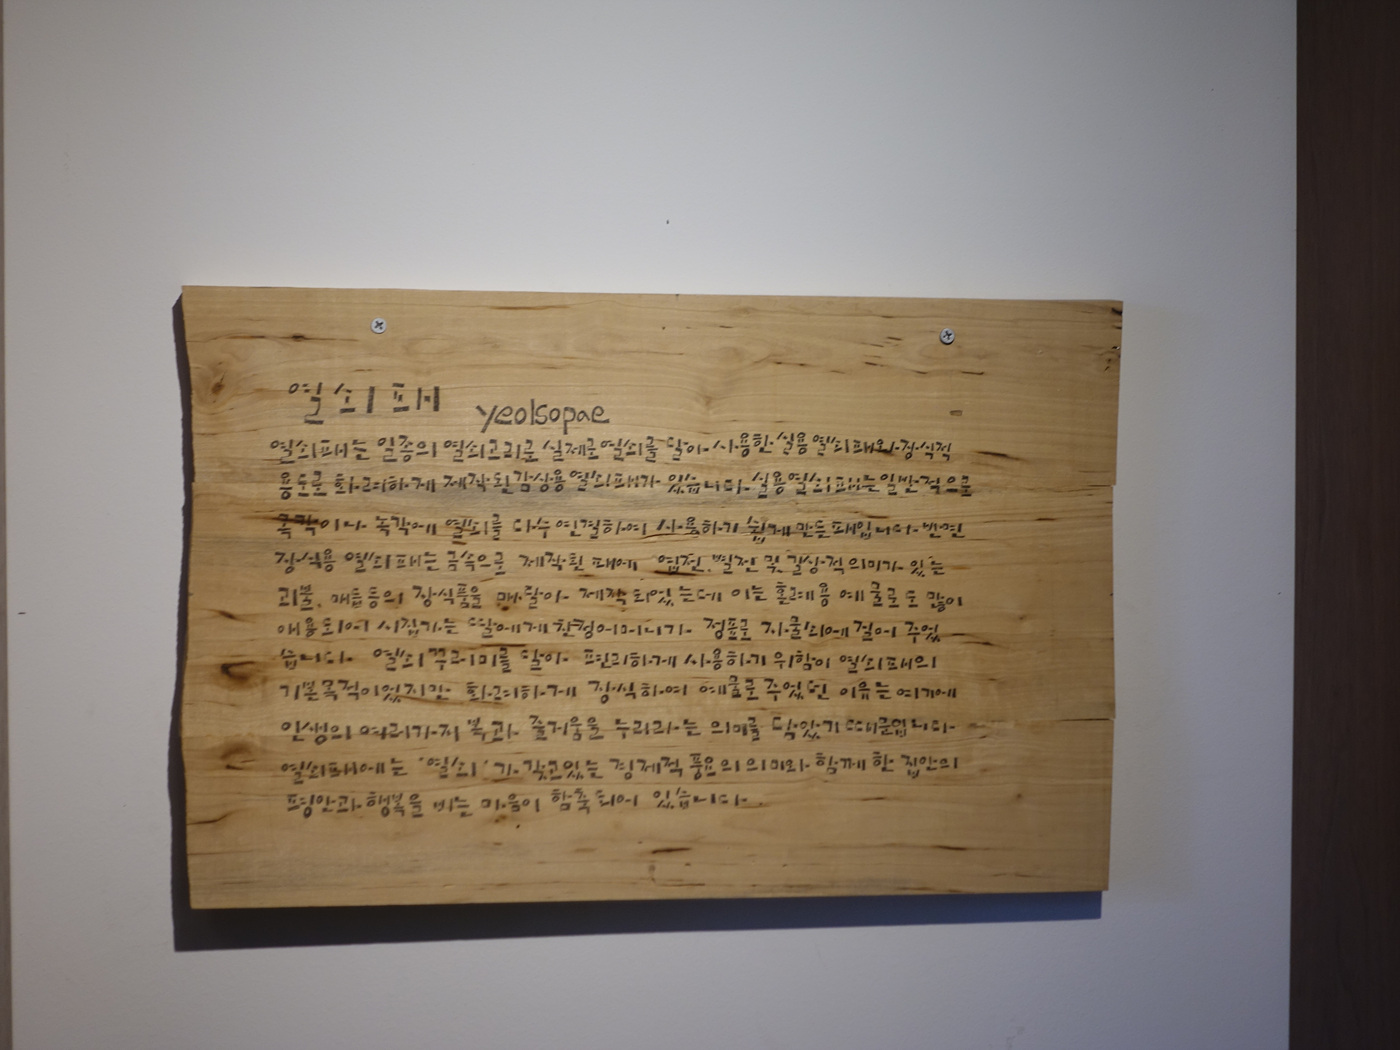 열쇠패 yeolsopae
열쇠패는 일종의 열쇠고리로 실제로 열쇠를 달아 사용한 실용 열쇠패와 장식적
용도로 화려하게 제작된 감상용 열쇠패가 있습니다. 실용열쇠패는 일반적으로
목각이나 녹각에 열쇠를 다수 연결하여 사용하기 쉽게 만든 패입니다. 반면
장식용 열쇠패는 금속으로 제작된 패에 엽전, 별전 및 길상적 의미가 있는
괴불, 매듭 등의 장식품을 매달아 제작 되었는데 이는 혼례용 예물로도 많이
애용되어 시집가는 딸에게 친정어머니가 정표로 자물쇠에 걸어 주었
습니다. 열쇠꾸러미를 달아 편리하게 사용하기 위함이 열쇠패의
기본목적이었지만 화려하게 장식하여 예물로 주었던 이유는 여기에
인생의 여러가지 복과 즐거움을 누리라는 의미를 담았기 때문입니다.
열쇠패에는 '열쇠'가 갖고있는 경제적 풍요의 의미와 함께 한 집안의
평안과 행복을 비는 마음이 함축되어 있습니다.